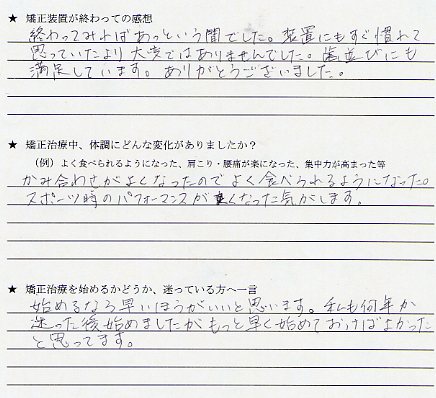 ★ 矯正装置が終わっての感想
終わってみればあっという間でした。装置にもすぐ慣れて
思っていたより大変ではありませんでした。歯並びにも
満足しています。ありがとうございました。
★ 矯正治療中、体調にどんな変化がありましたか？
（例）よく食べられるようになった、肩こり・腰痛が楽になった、集中力が高まった等
かみ合わさがよくなったのでよく食べられるようになった。
スポーツ時のパフォーマンスが良くなった気がします。
★ 矯正治療を始めるかどうか、迷っている方へ一言
始めるなら早いほうがいいと思います。私も何年か
迷った後始めましたがもっと早く始めておけばよかった
と思ってます。